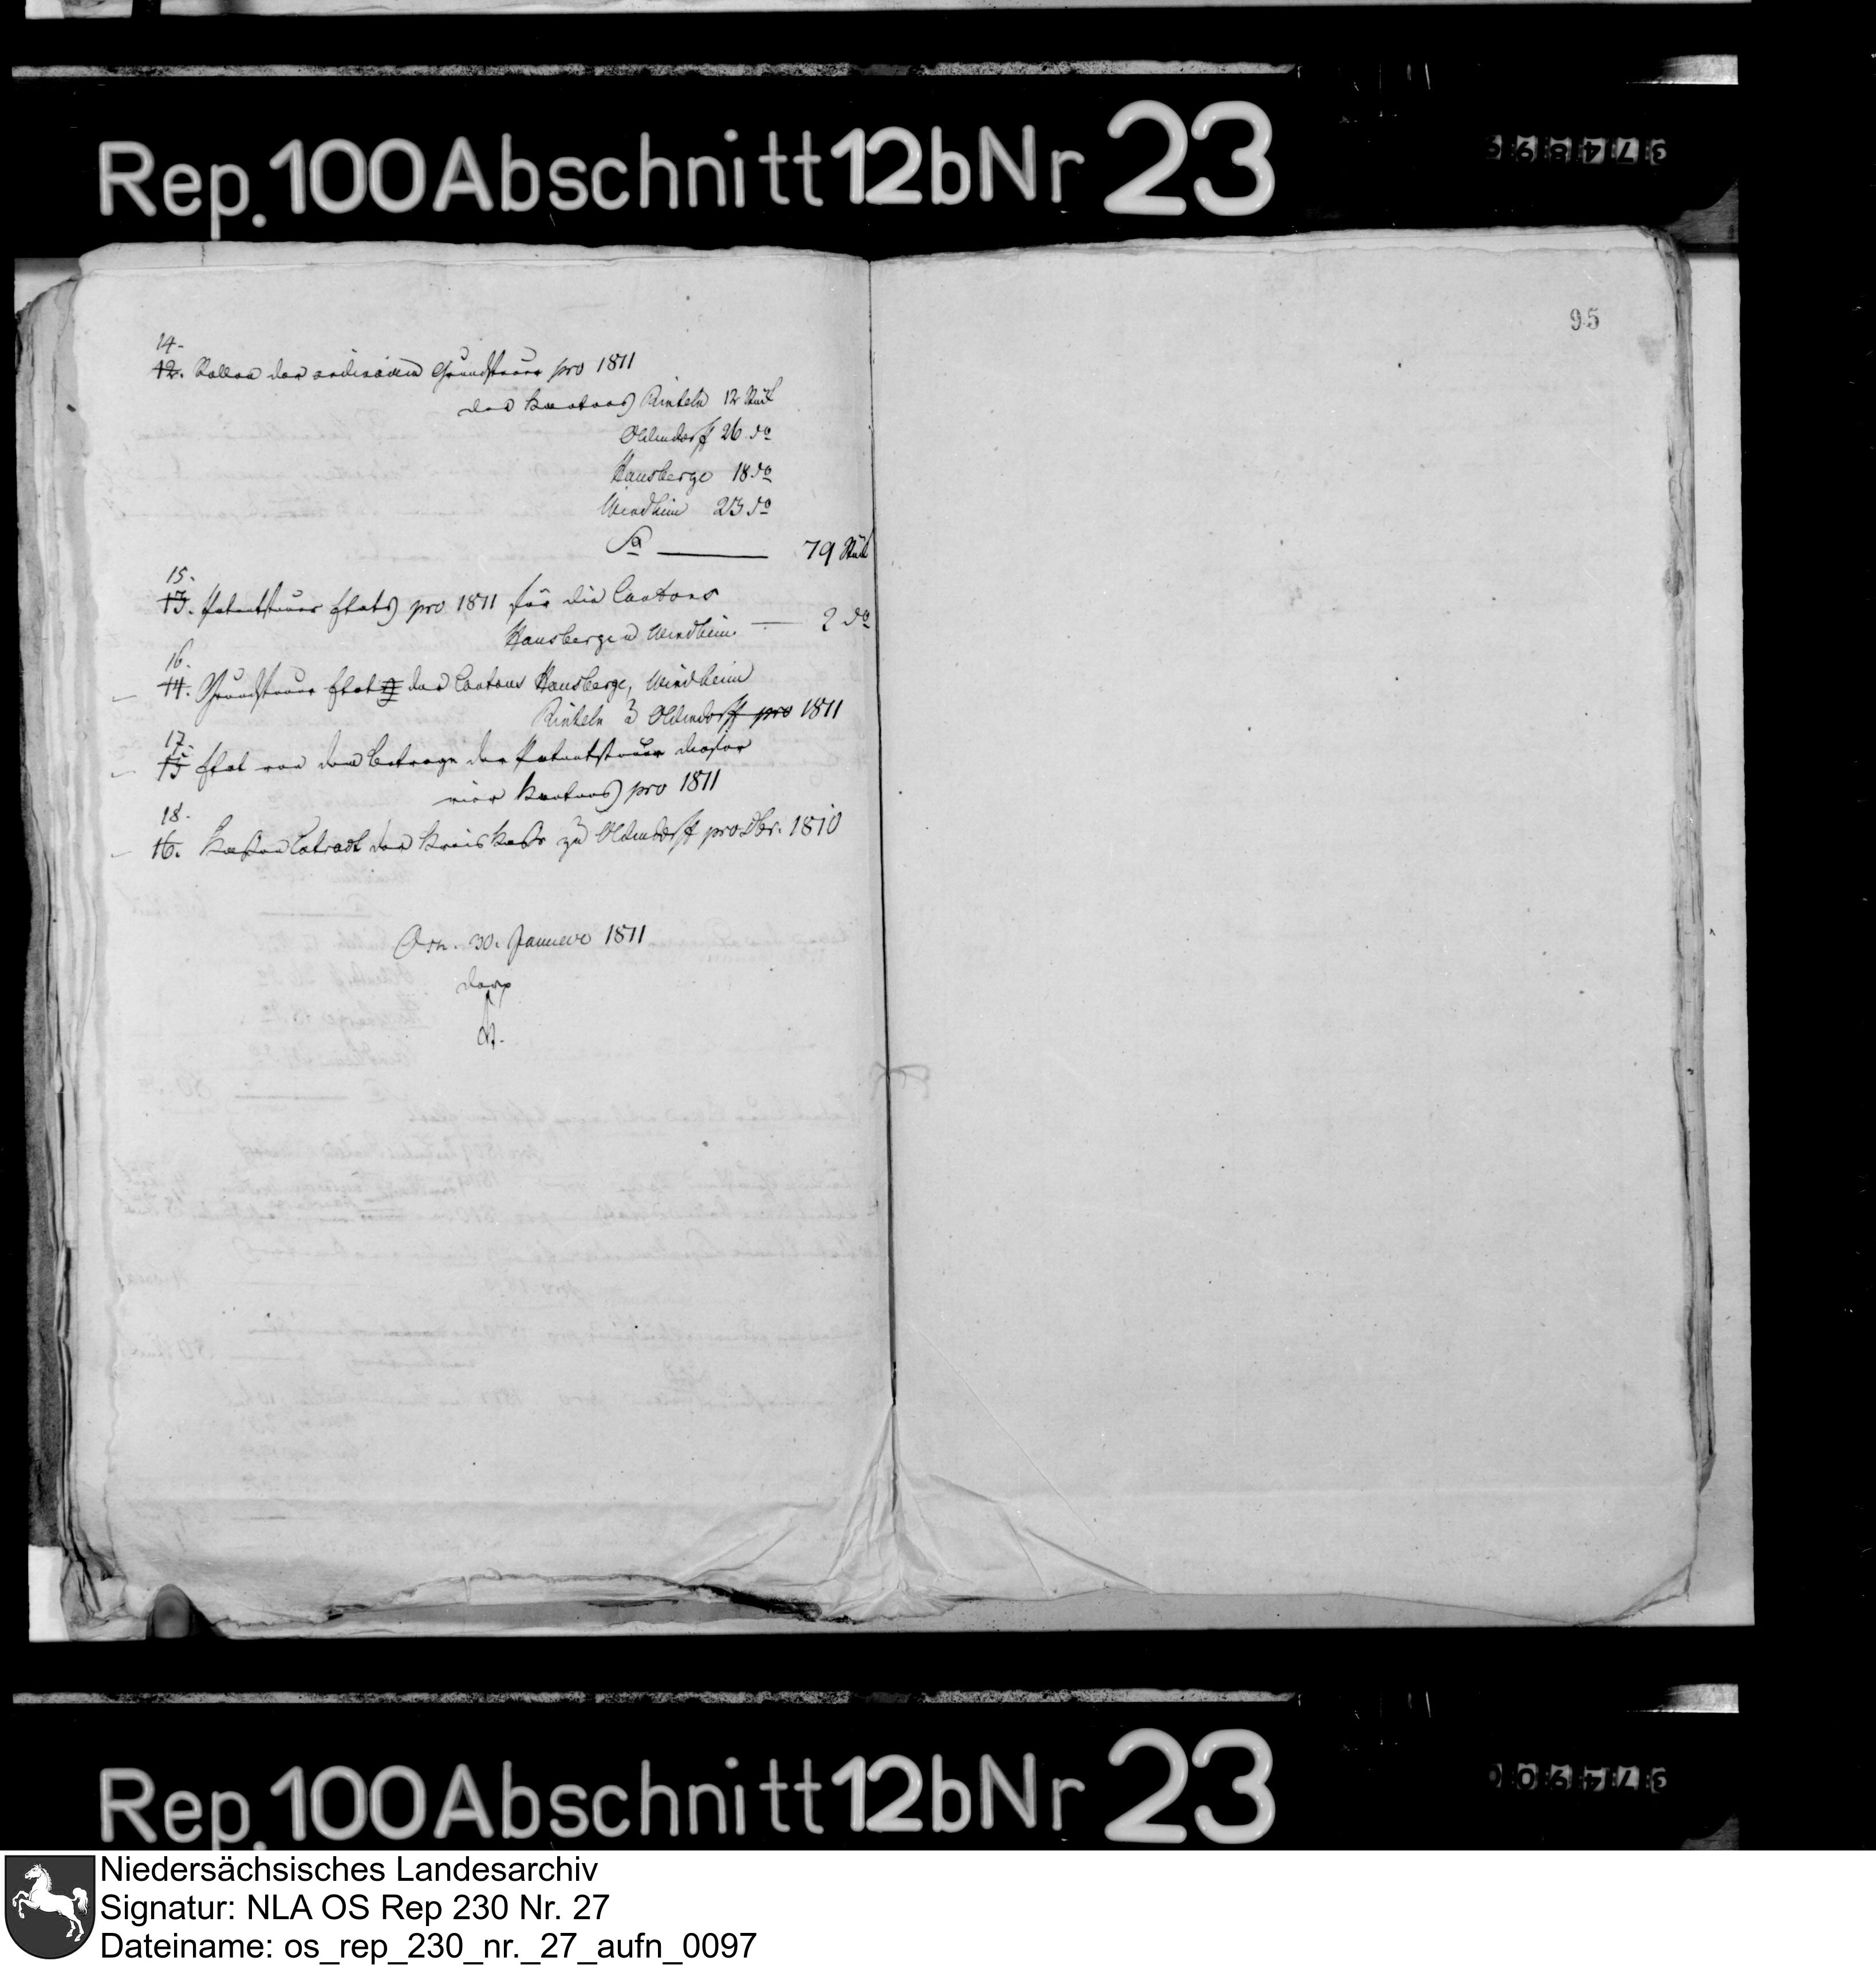 Rep. 100 Abschnitt 12b Nr 23
95
14.
12. Rollen der ordinairen Grundsteuer pro 1811
des Kantons Rinteln 12 Stück
Oldendorff 26 do
Hausberge 18 do
Windheim 23 do
Sa 79 Stück
15.
13. Patentsteuer Etats pro 1811 für die Cantons
Hausberge u Windheim. — 2 do
16.
14. Grundsteuer Etat der Cantons Hausberge, Windheim
Rinteln & Oldendorff pro 1811
17.
15 Etat von dem Betrage der Patentsteuer dieser
vier Kantons pro 1811
18.
16. Kassen Extract der Kreis Kasse zu Oldendorff pro Dbr. 1810
Osn. 30. Januar 1811
Rep. 100 Abschnitt 12b Nr 23
Niedersächsisches Landesarchiv
Signatur: NLA OS Rep 230 Nr. 27
Dateiname: os_rep_230_nr._27_aufn_0097